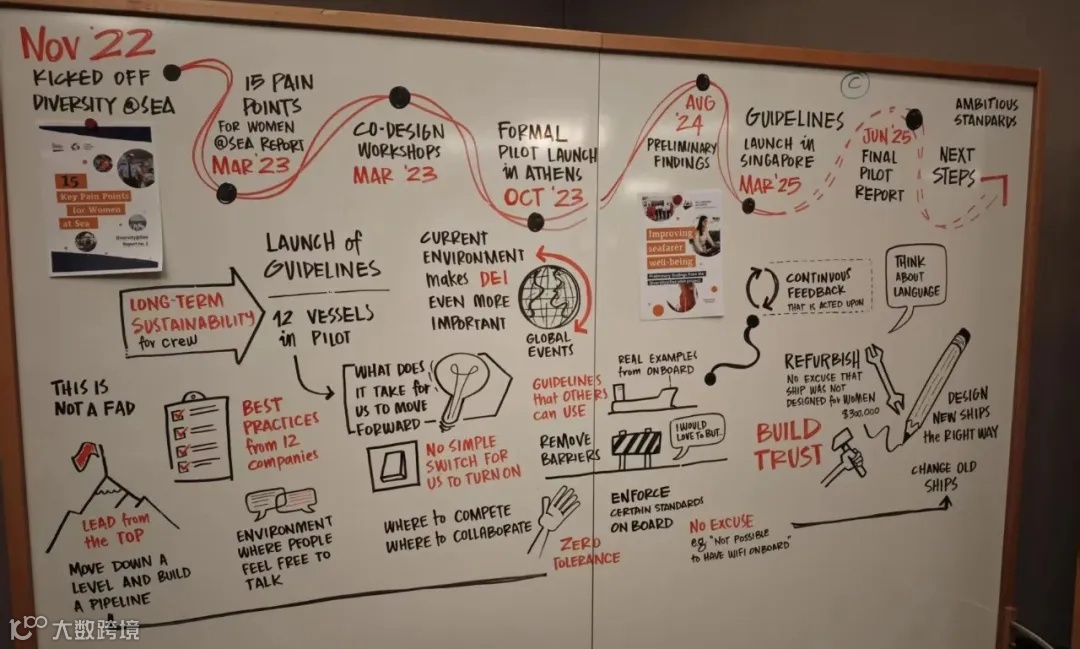 Nov '22
KICKED OFF
DIVERSITY @SEA
15 PAIN
POINTS
FOR WOMEN
@SEA REPORT
MAR '23
CO-DESIGN
WORKSHOPS
MAR '23
FORMAL
PILOT LAUNCH
in ATHENS
OCT '23
AUG
'24
PRELIMINARY
FINDINGS
GUIDELINES
LAUNCH in
SINGAPORE
MAR '25
C
JUN '25
FINAL
PILOT
REPORT
AMBITIOUS
STANDARDS
NEXT
STEPS
15
Key Pain Points
for Women
at Sea
Diversity@Sea
Report no. 1
LONG-TERM
SUSTAINABILITY
for crew
LAUNCH of
GUIDELINES
12 VESSELS
in PILOT
CURRENT
ENVIRONMENT
makes DEI
EVEN MORE
IMPORTANT
GLOBAL
EVENTS
Improving
seafarer
well-being
CONTINUOUS
FEEDBACK
THAT IS ACTED UPON
THINK
ABOUT
LANGUAGE
THIS IS
NOT A FAD
BEST
PRACTICES
from 12
companies
WHAT DOES
IT TAKE for
US TO MOVE
FORWARD
NO SIMPLE
SWITCH FOR
US TO TURN ON
GUIDELINES
that OTHERS
can USE
REAL EXAMPLES
from ONBOARD
REMOVE
BARRIERS
I WOULD
LOVE TO BUT..
REFURBISH
NO EXCUSE THAT
SHIP WAS NOT
DESIGNED for WOMEN
$300.000
BUILD
TRUST
DESIGN
NEW SHIPS
the RIGHT WAY
CHANGE OLD
SHIPS
LEAD from
the TOP
MOVE DOWN A
LEVEL AND BUILD
A PIPELINE
ENVIRONMENT
WHERE PEOPLE
FEEL FREE TO
TALK
WHERE to COMPETE
WHERE to COLLABORATE
ZERO
TOLERANCE
ENFORCE
CERTAIN STANDARDS
ON BOARD
NO EXCUSE
eg. "NOT POSSIBLE
to HAVE WIFI ONBOARD"
大数跨境